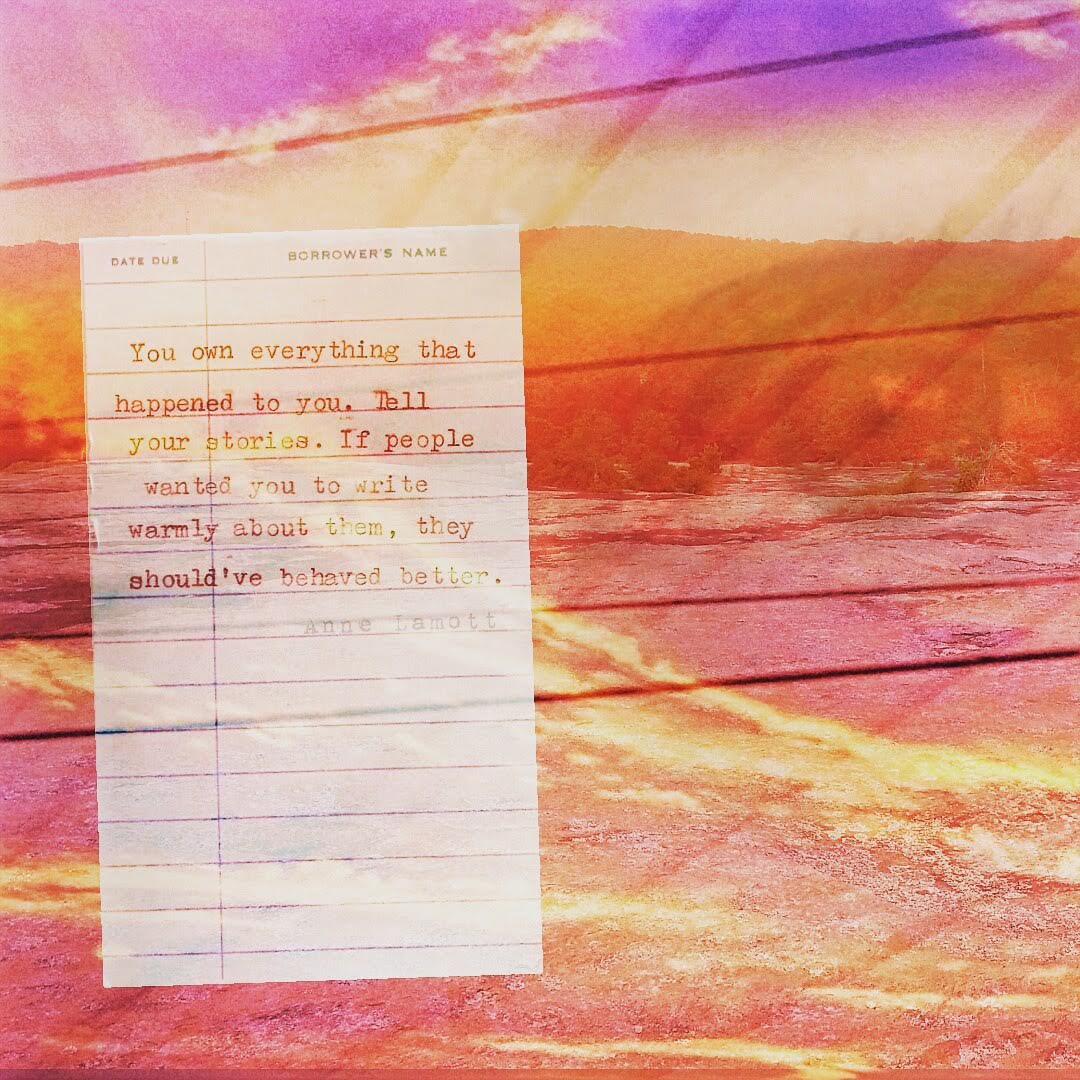 DATE DUE BORROWER'S NAME
You own everything that
happened to you. Tell
your stories. If people
wanted you to write
warmly about them, they
should've behaved better.
Anne Lamott